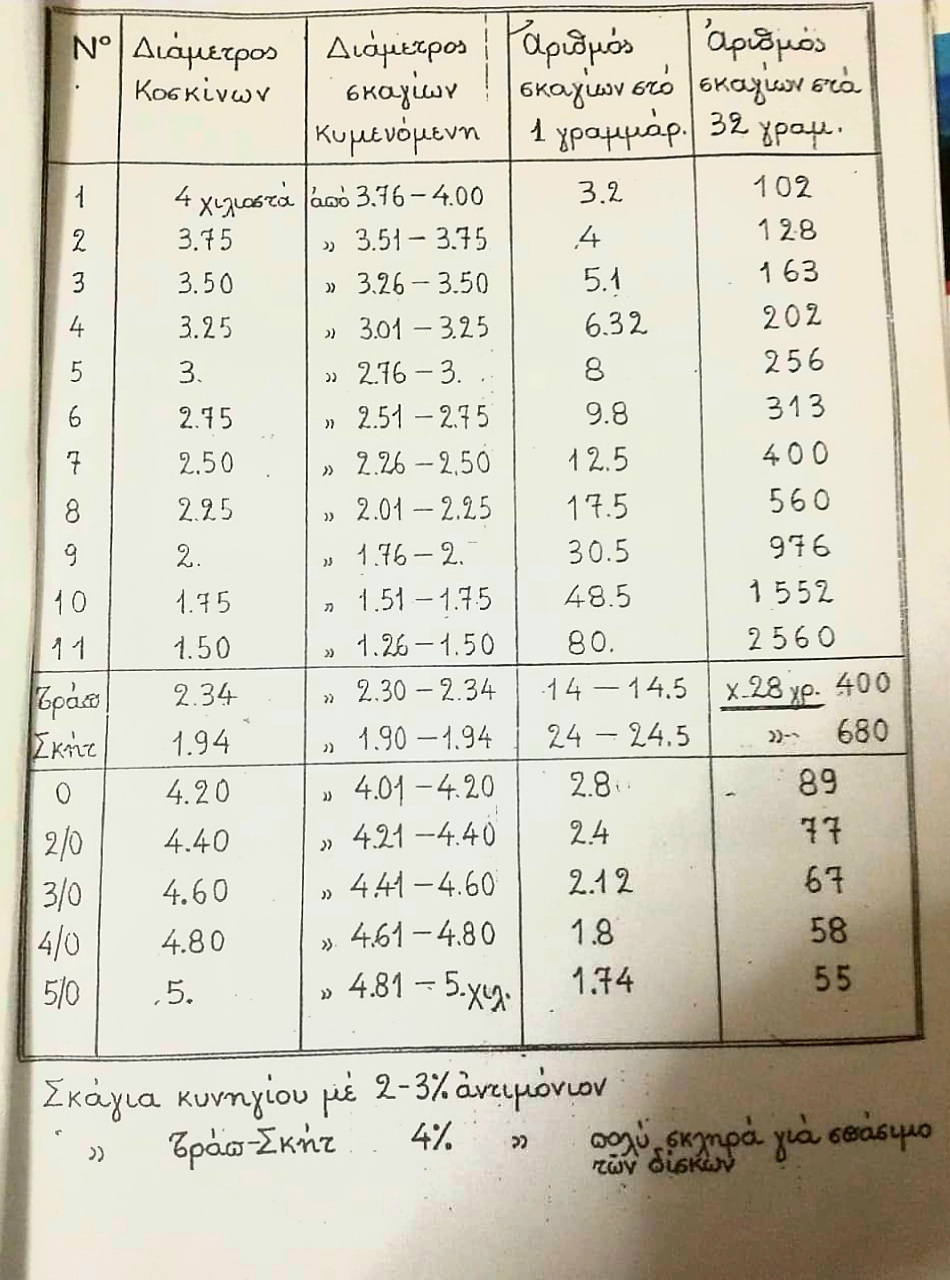 Νο Διάμετρος Κοσκίνων Διάμετρος σκαγίων Κυμενόμενη Ἀριθμός σκαγίων στό 1 γραμμάρ. Ἀριθμός σκαγίων στά 32 γραμ.
1 4 χιλιοστά ἀπό 3.76 – 4.00 3.2 102
2 3.75 » 3.51 – 3.75 4 128
3 3.50 » 3.26 – 3.50 5.1 163
4 3.25 » 3.01 – 3.25 6.32 202
5 3. » 2.76 – 3. 8 256
6 2.75 » 2.51 – 2.75 9.8 313
7 2.50 » 2.26 – 2.50 12.5 400
8 2.25 » 2.01 – 2.25 17.5 560
9 2. » 1.76 – 2. 30.5 976
10 1.75 » 1.51 – 1.75 48.5 1552
11 1.50 » 1.26 – 1.50 80. 2560
Τράπ 2.34 » 2.30 – 2.34 14 – 14.5 χ-28 γρ. 400
Σκήτ 1.94 » 1.90 – 1.94 24 – 24.5 » 680
0 4.20 » 4.01 – 4.20 2.8 89
2/0 4.40 » 4.21 – 4.40 2.4 77
3/0 4.60 » 4.41 – 4.60 2.12 67
4/0 4.80 » 4.61 – 4.80 1.8 58
5/0 5. » 4.81 – 5. χιλ. 1.74 55
Σκάγια κυνηγίου μέ 2-3% ἀντιμόνιον
» Τράπ-Σκήτ 4% » πολύ σκληρά γιά σπάσιμο
τῶν δίσκων